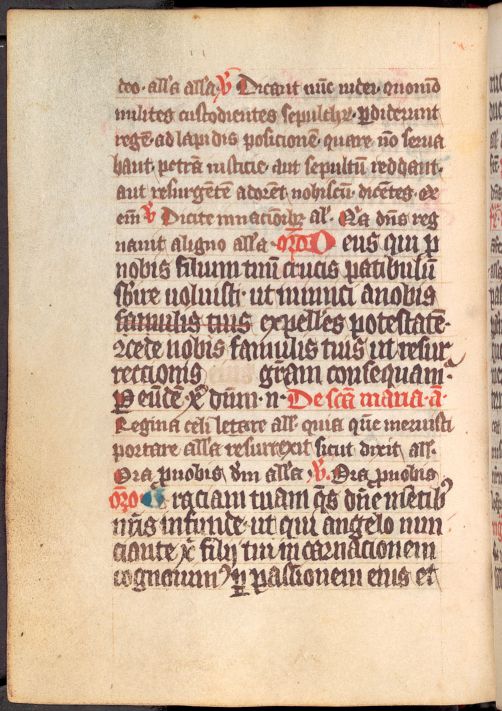 deo· all'a all'a· ℣ Dicant nūc iudei· quomō
milites custodientes sepulchr̄· ꝑdiderunt
regē· ad lapidis posicionē· quare nō serua
bant· petrā iusticie· aut sepultū reddant·
aut resurgētē adorēt· nobiscū· dicētes· ex
em̄ ℣ Dicite in nacionibꝫ al'· Q̄a dn̄s reg
nauit a ligno all'a· or̄o D eus qui p̱
nobis filium tuū crucis patibulū
sb̄ire uoluisti· ut inimici a nobis
famulis tuis expelles potestatē·
ꝯcede nobis famulis tuis ut resur
rectionis gram̄ consequam̄·
P̱ eūdē xp̄ dūm· n· De scā maria· a᷑
Regina celi letare all'· quia quē meruisti
portare all'a resurrexit sicut dixit all'·
Ora ꝓ nobis dm̄ all'a ℣. Ora ꝓ nobis
or̄o G rꝗciam tuam q̄s dn̄e mētibꝰ
nr̄is infunde· ut qui angelo nun
ciante xp̄i filij tui incarnacionem
cognouimꝰ ꝑ passionem eius et